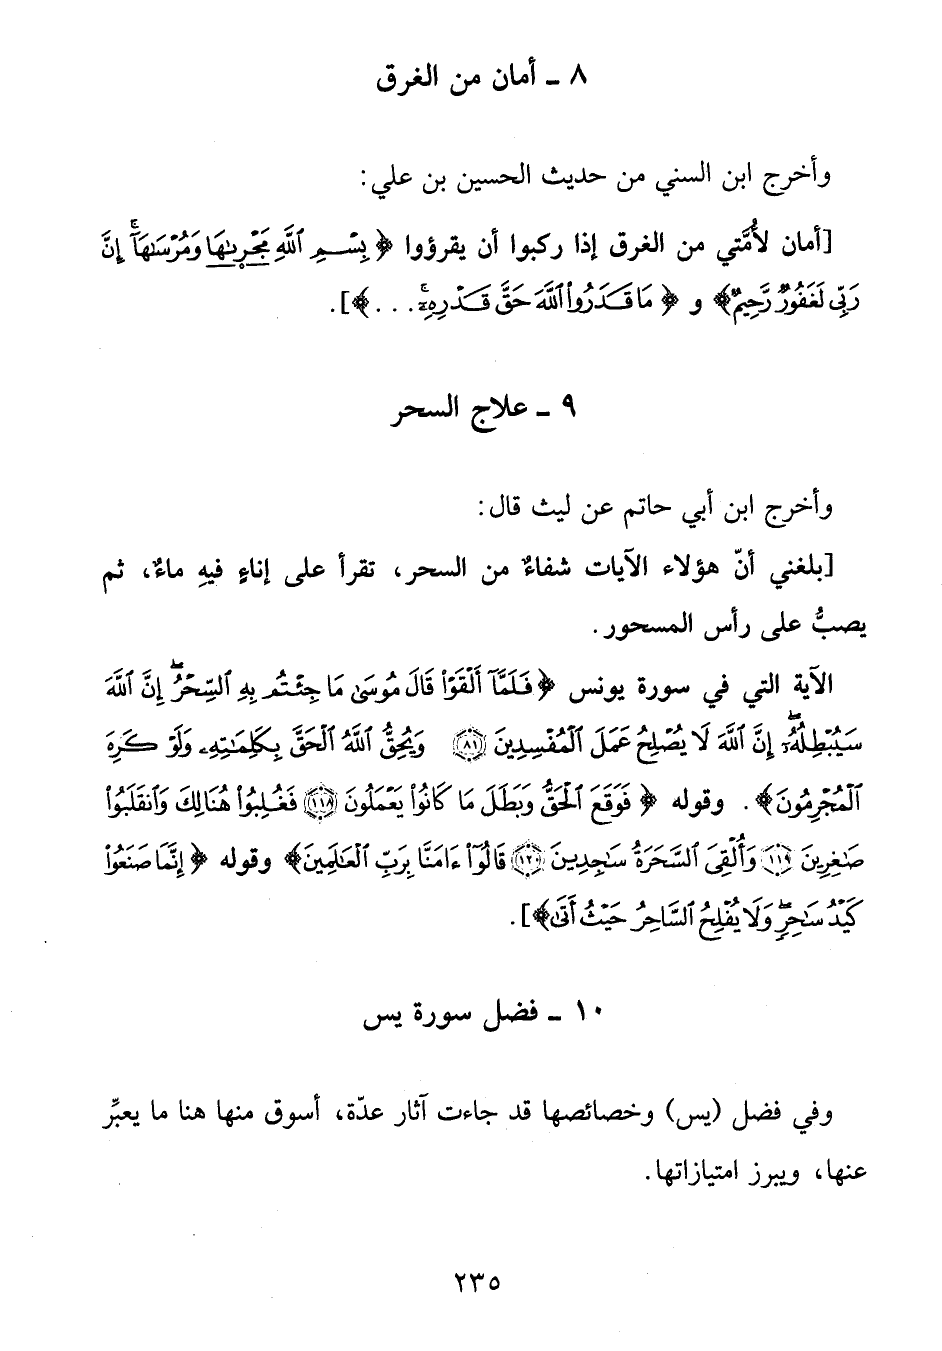 ٨ ـ أمان من الغرق
وأخرج ابن السني من حديث الحسين بن علي:
[أمان لأُمَّتي من الغرق إذا ركبوا أن يقرؤوا ﴿ بِسْمِ ٱللَّهِ مَجْرٜىٰهَا وَمُرْسَىٰهَآ ۚ إِنَّ
رَبِّى لَغَفُورٌ رَّحِيمٌ﴾ و ﴿ مَا قَدَرُوا۟ ٱللَّهَ حَقَّ قَدْرِهِۦٓ ۚ . . . ﴾].
٩ ـ علاج السحر
وأخرج ابن أبي حاتم عن ليث قال:
[بلغني أنّ هؤلاء الآيات شفاءٌ من السحر، تقرأ على إناءٍ فيهِ ماءٌ، ثم
يصبُّ على رأس المسحور.
الآية التي في سورة يونس ﴿فَلَمَّآ أَلْقَوْا۟ قَالَ مُوسَىٰ مَا جِئْتُم بِهِ ٱلسِّحْرُ ۖ إِنَّ ٱللَّهَ
سَيُبْطِلُهُۥٓ ۖ إِنَّ ٱللَّهَ لَا يُصْلِحُ عَمَلَ ٱلْمُفْسِدِينَ ﴿٨١﴾ وَيُحِقُّ ٱللَّهُ ٱلْحَقَّ بِكَلِمَـٰتِهِۦ وَلَوْ كَرِهَ
ٱلْمُجْرِمُونَ﴾. وقوله ﴿ فَوَقَعَ ٱلْحَقُّ وَبَطَلَ مَا كَانُوا۟ يَعْمَلُونَ ﴿١١٨﴾ فَغُلِبُوا۟ هُنَالِكَ وَٱنقَلَبُوا۟
صَـٰغِرِينَ ﴿١١٩﴾ وَأُلْقِىَ ٱلسَّحَرَةُ سَـٰجِدِينَ ﴿١٢٠﴾ قَالُوٓا۟ ءَامَنَّا بِرَبِّ ٱلْعَـٰلَمِينَ﴾ وقوله ﴿ إِنَّمَا صَنَعُوا۟
كَيْدُ سَـٰحِرٍ ۖ وَلَا يُفْلِحُ ٱلسَّاحِرُ حَيْثُ أَتَىٰ﴾].
١٠ ـ فضل سورة يس
وفي فضل (يس) وخصائصها قد جاءت آثار عدّة، أسوق منها هنا ما يعبِّر
عنها، ويبرز امتيازاتها.
٢٣٥